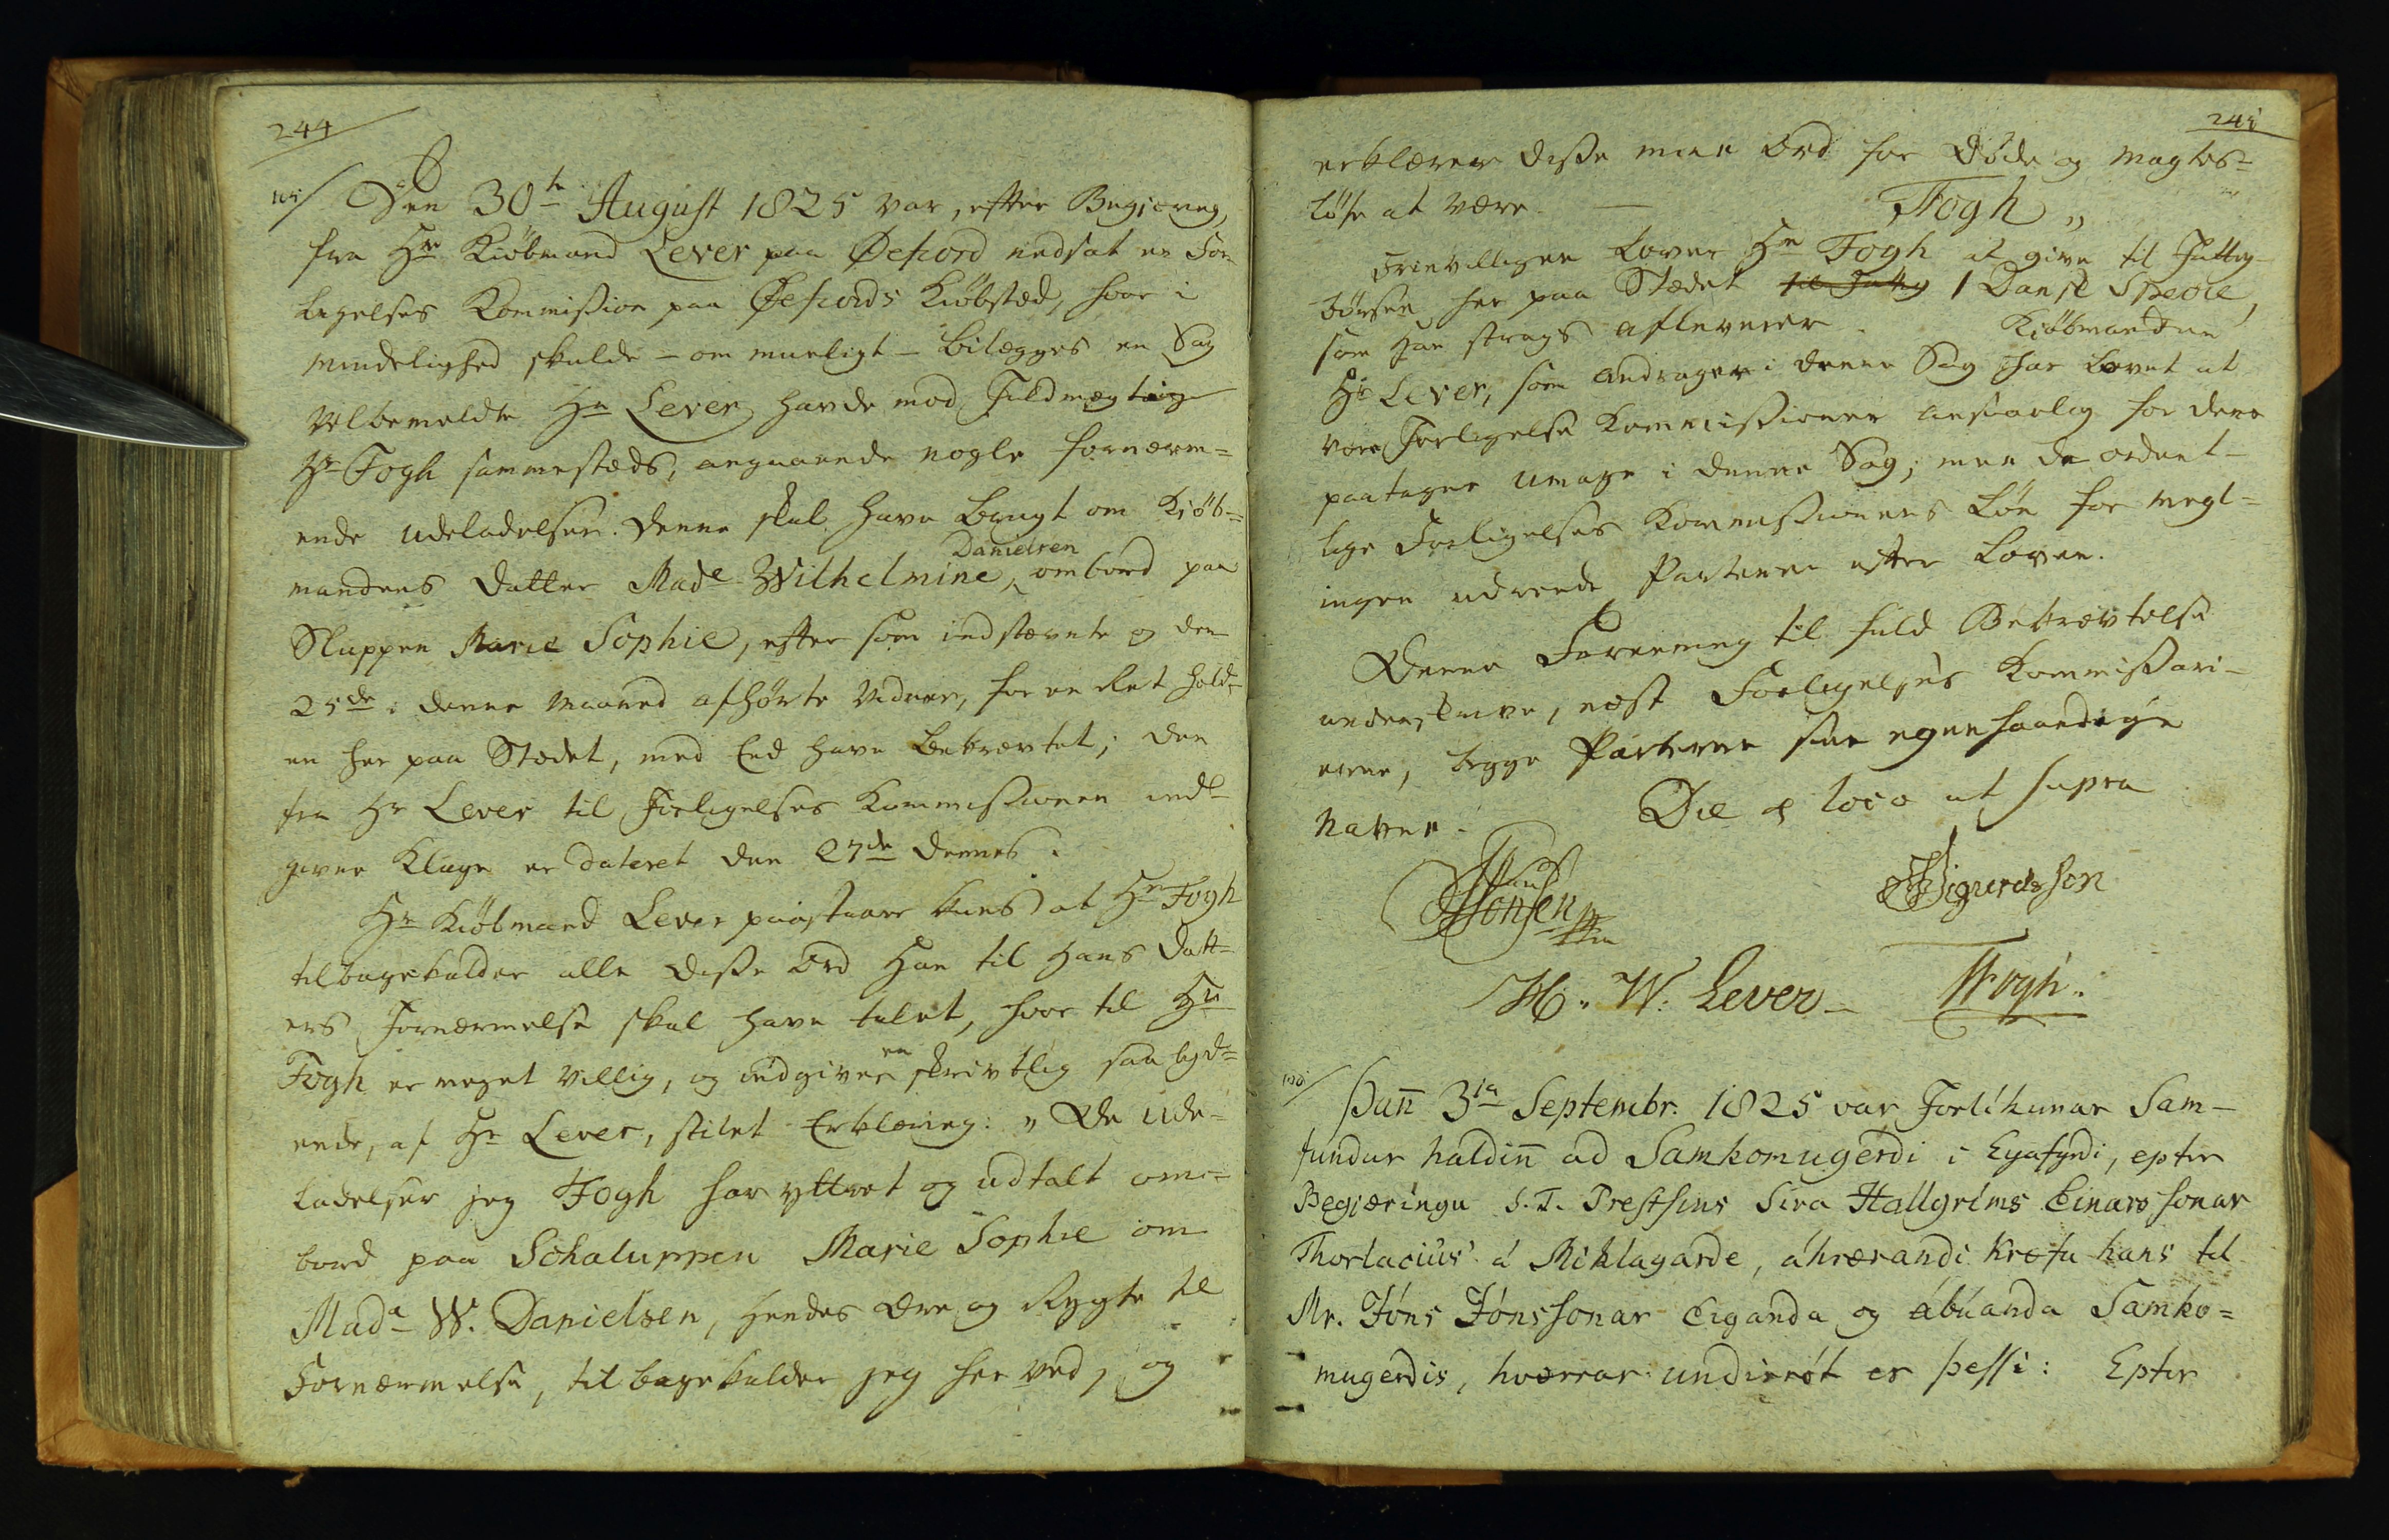 244
Den 30te August 1825 var, efter Begjæring,
fra Hr Kiöbmand Lever paa Öefiord nedsat en For-
ligelses Kommission paa Öefiords Kiöbstæd, hvor i
Mindelighed skulde - om mueligt - bilægges en Sag
Velbemeldte Hr Lever havde mod Fuldmægtig
Hr Fogh sammestæds, angaaende nogle fornærm=
ende Udeladelser denne skal have brugt om Kiöb=
mandens Datter Made Wilhelmine Danielsen, ombord paa
Sluppen Marie Sophie, efter som indstævnte og den
25de i denne Maaned afhörte Vidner, for en Ret hold-
en her paa Stædet, med Eed have bekrævtet; den
fra Hr Lever til Forligelses Kommissionen ind-
givne Klage er dateret den 27de dennes.
Hr Kiöbmand Lever paastaaer kuns at Hr Fogh
tilbagekalder alle disse Ord han til hans Datt=
ers Fornærmelse skal have talet, hvor til Hr
Fogh er meget villig, og indgiver en skrivtlig saa lyd=
ende, af Hr Lever, stilet Erklæring: "De Ude-
ladelser jeg Fogh har yttret og udtalt om-
bord paa Schaluppen Marie Sophie om
Mada W. Danielsen, hendes Ære og Rygte til
Fornærmelse, tilbagekalder jeg her ved, og
245
erklærer disse mine Ord for döde og magtes=
löse at være. — Fogh "
Frievilligen lover Hr Fogh at give til Fattig-
börsen her paa Stædet til Fattig 1 Dansk Specie,
som han strags afleverer. Kiöbmanden
Hr Lever, som Andrager i denne Sag har lovet at
være Forligelse Kommissionen ansvarlig for dens
paatagne Umage i denne Sag; men de ordent-
lige Forligelses Kommissionens Lön for Megl=
ingen udrede Parterne efter Loven.
Denne Forening til fuld Bekrævtelse
underskrive, næst Forligelses Kommissari-
erne, begge Parterne sine egenhaandige
Navne. Die & loco ut supra
Jonsen Sigurdsson
H. W. Lever - Fogh.
Þañ 3ia Septembr. 1825 var Forlíkunar Sam-
fundur haldiñ ad Samkomugerdi i Eyafyrdi, epter
Begjæringu S. T. Prestsins Sira Hallgríms Einarssonar
Thorlaciús' á Miklagarde, áhrærandi kröfu hans til
Mr. Jóns Jónssonar Eiganda og ábúanda Samko=
mugerdis, hvørrar undirrót er þessi: Epter